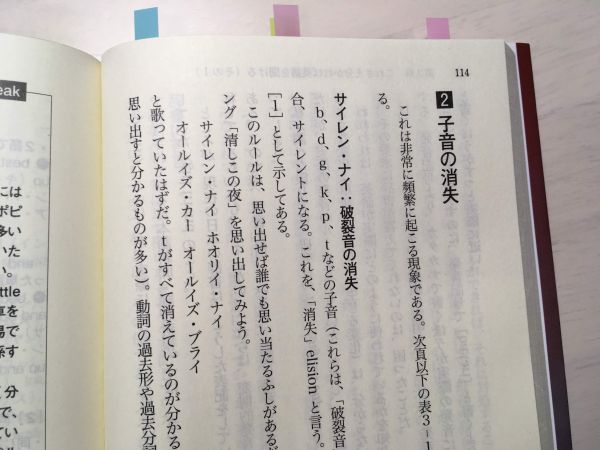 114
2 子音の消失
これは非常に頻繁に起こる現象である。次頁以下の表3-1
る。
サイレン・ナイ:破裂音の消失
b、d、g、k、p、tなどの子音(これらは、「破裂音
合、サイレントになる。これを、「消失」elisionと言う。
[1]として示してある。
このルールは、思い出せば誰でも思い当たるふしがある
ング「清しこの夜」を思い出してみよう。
サイレン・ナイ ホオリイ・ナイ
オールイズ・カー オールイズ・ブライ
と歌っていたはずだ。tがすべて消えているのが分かる
思い出すと分かるものが多い)。動詞の過去形や過去分詞
eak
には
ポピ
多い
いた
い。
ttle
車を
易で
係す
分
で、
てい